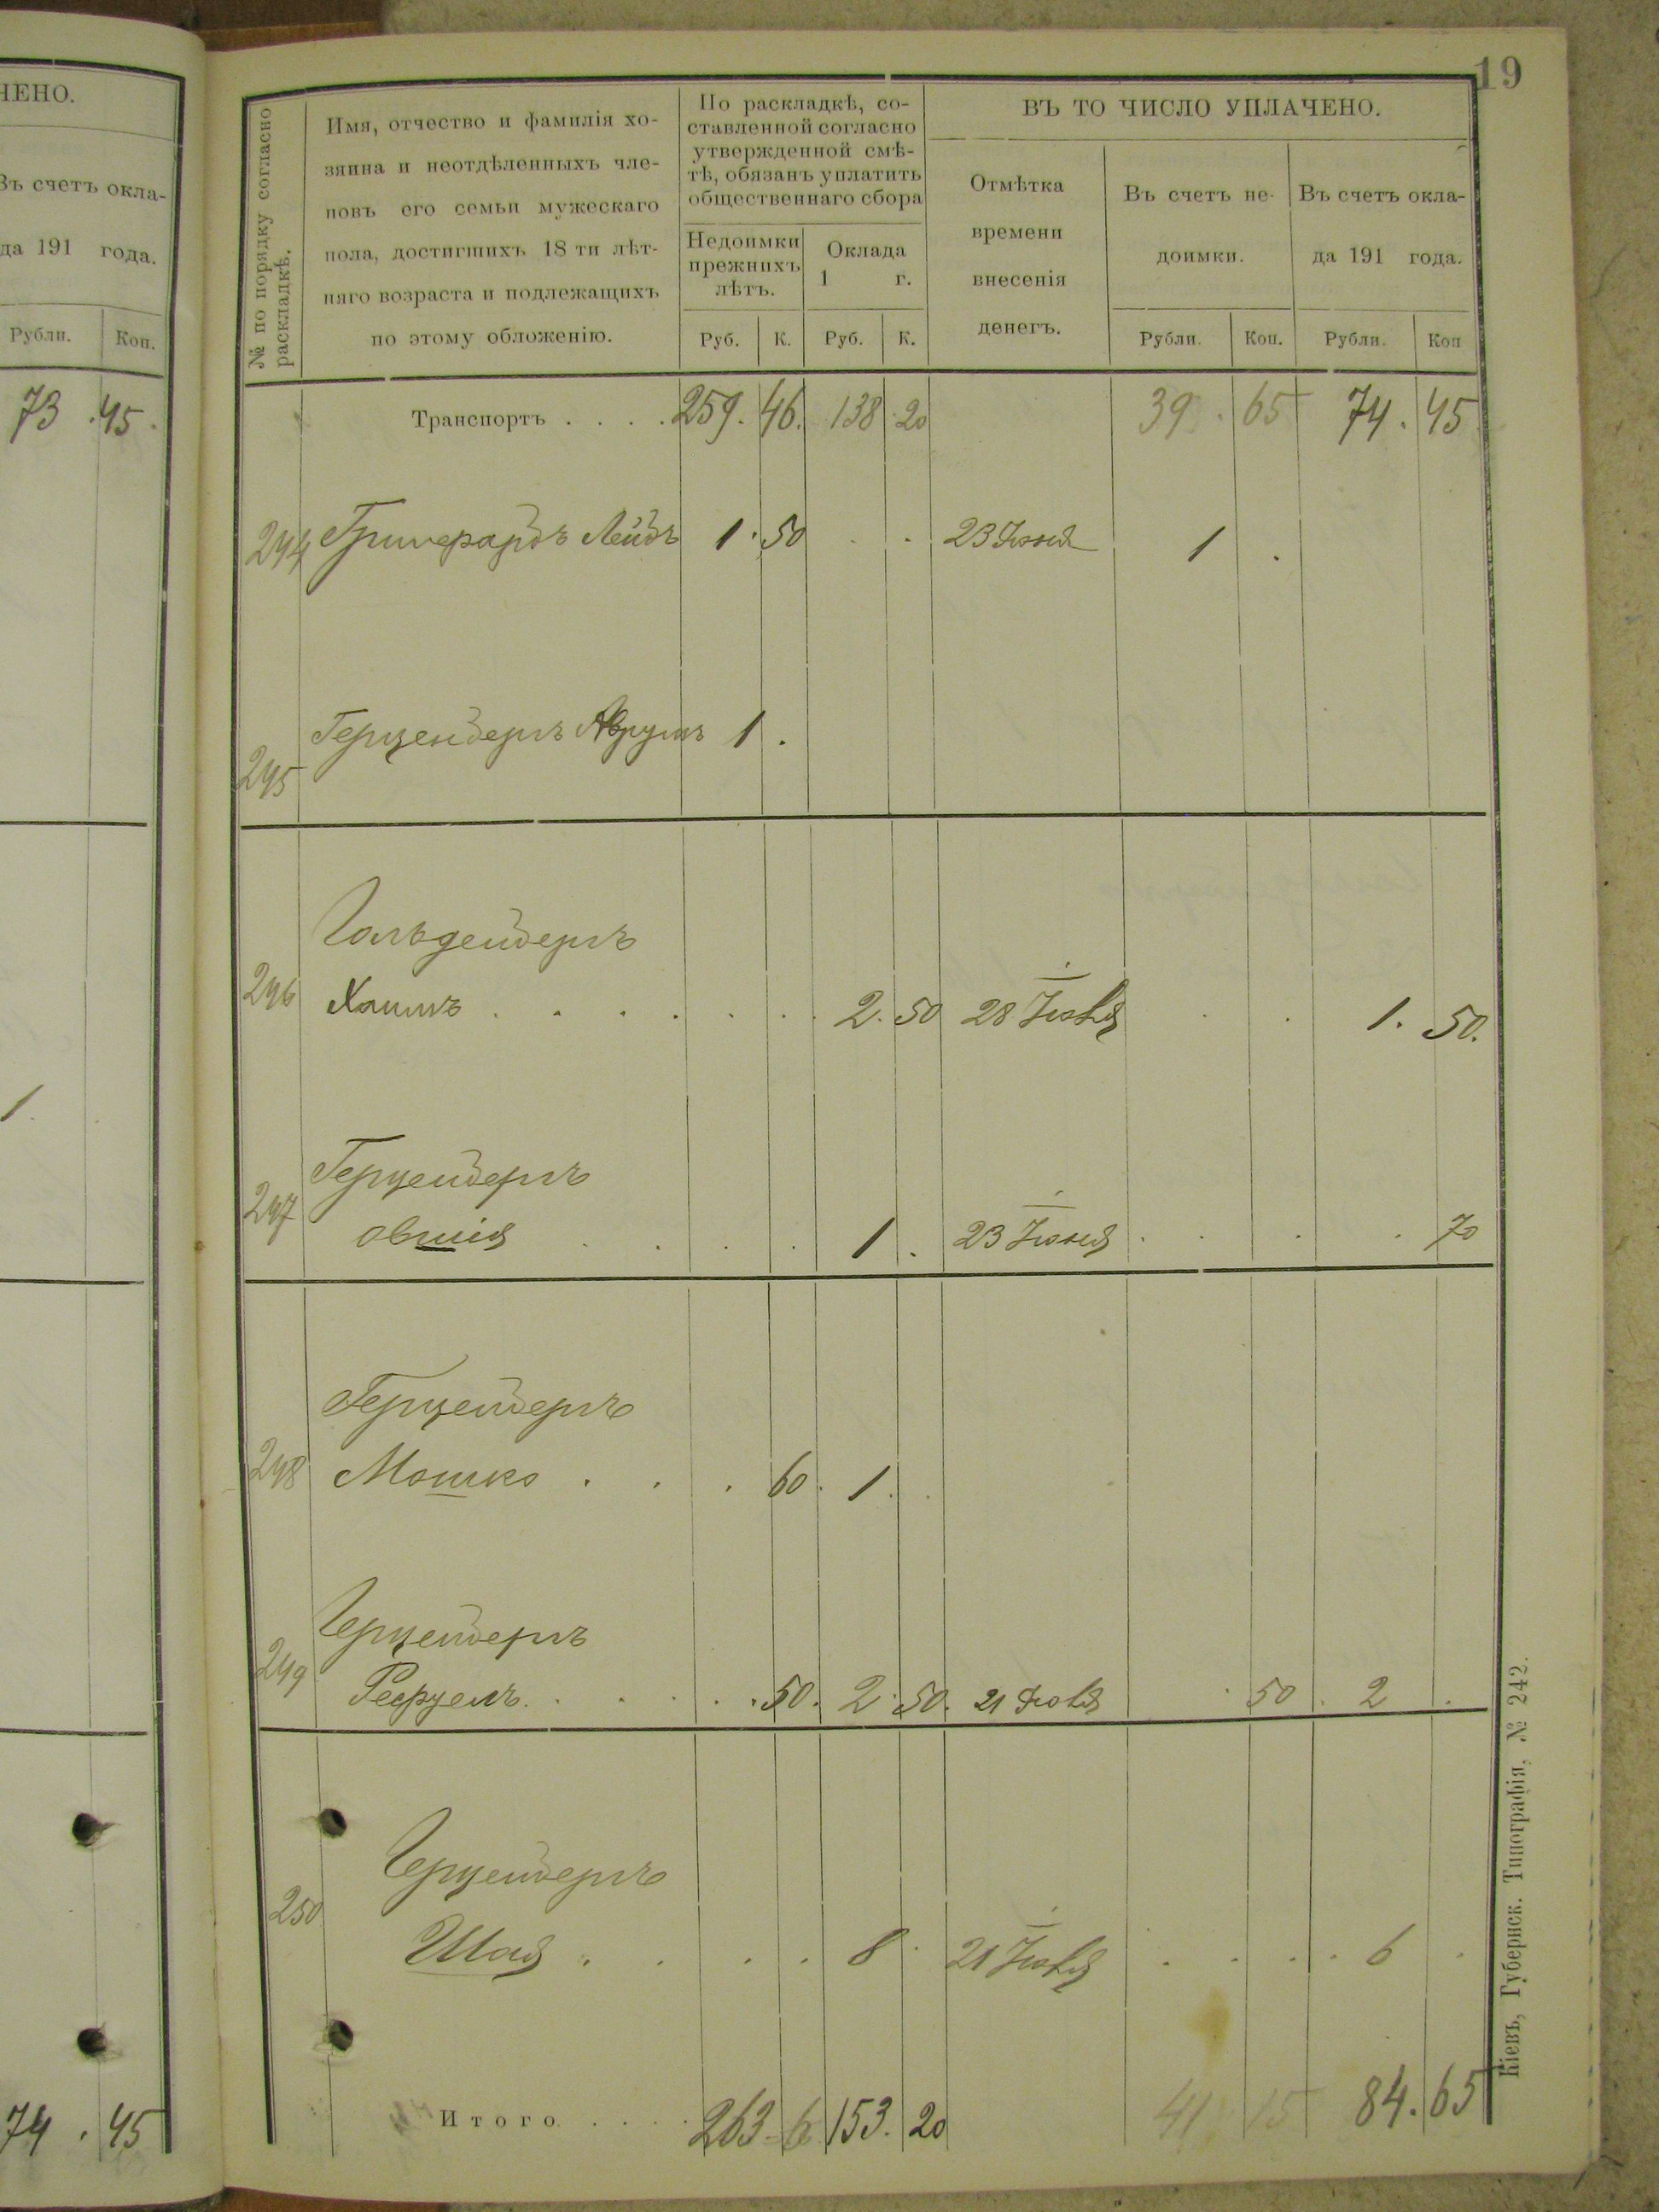 ЧЕНО.
Въ счетъ окла-
да 191 года.
Рубли. Коп.
73 . 45.
1.
74 . 45
19
№ по порядку согласно
раскладкѣ.
Имя, отчество и фамилія хо-
зяина и неотдѣленныхъ чле-
новъ его семьи мужескаго
пола, достигшихъ 18 ти лѣт-
няго возраста и подлежащихъ
по этому обложенію.
По раскладкѣ, со-
ставленной согласно
утвержденной смѣ-
тѣ, обязанъ уплатить
общественнаго сбора
Недоимки
прежнихъ
лѣтъ.
Оклада
1 г.
Руб. К. Руб. К.
ВЪ ТО ЧИСЛО УПЛАЧЕНО.
Отмѣтка
времени
внесенія
денегъ.
Въ счетъ не-
доимки.
Рубли. Коп.
Въ счетъ окла-
да 191 года.
Рубли. Коп
Транспортъ . . . . 259. 46. 138 20 39 . 65 74 . 45
244 Лейбъ 1 . 50 . . 23 Іюня 1 .
Герценбергъ Аврумъ 1 .
245
246 Хаимъ . . . . . . 2. 50 28 Іюля . . 1. 50.
Герценбергъ
247 Овшія . . . . 1 . 23 Іюня . . . . 70
Герценбергъ
248 Мошко . . . 60. 1 . .
Герценбергъ
249 . . . . 50. 2. 50. 21 Іюля . 50 . 2 .
Герценбергъ
250 Шая . . . . 8 . 21 Іюля . . . . 6 .
Итого . . . . 263 6 153. 20 41 15 84. 65
Кіевъ, Губернск. Типографія, № 242.